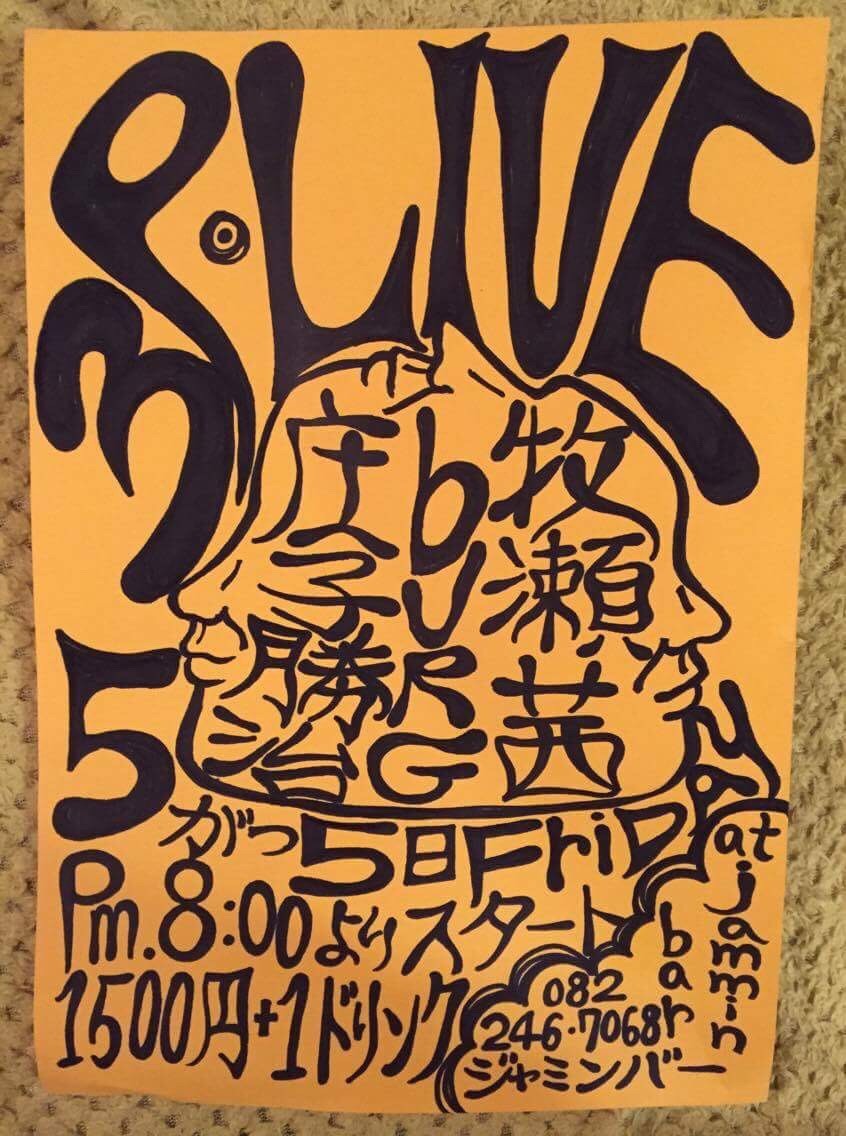 3P・LIVE
庄子勝治
bURG
牧瀬茜
5がつ5日FriDAY
Pm.8:00よりスタート
1500円+1ドリンク
at jammin
bar
082
246・7068
ジャミンバー